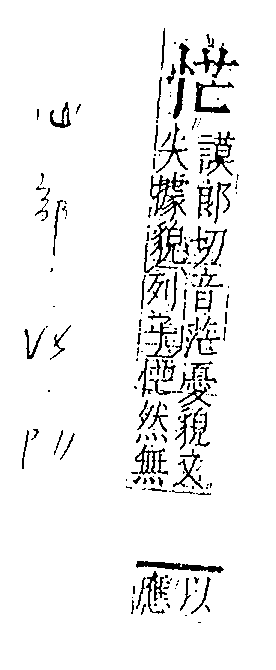 恾
謨郎切音茫憂貌又
失據貌列子恾然無
以
應
心部.V5.P11